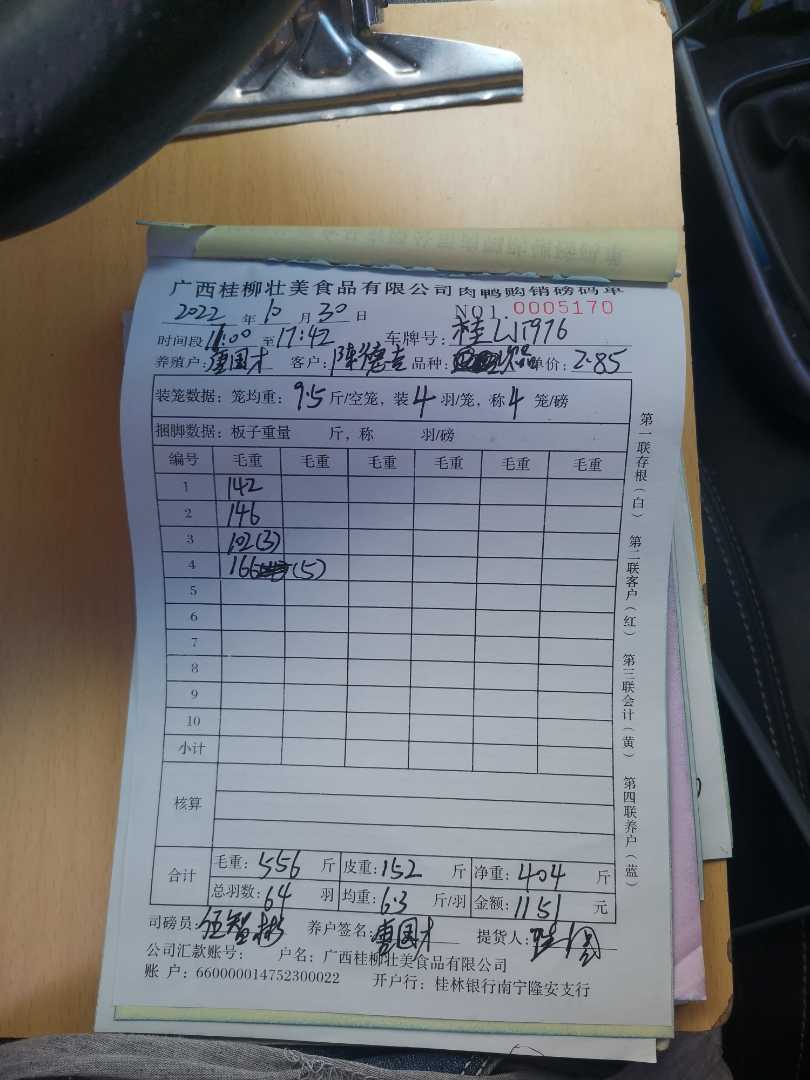 广西桂柳壮美食品有限公司肉鸭购销磅码单
2022 年 10 月 30 日 NO1.0005170
时间段 17:00 至 17:42 车牌号:桂LJT976
养殖户:唐国才 客户:陈德 品种: 单价:2.85
装笼数据:笼均重:9.5 斤/空笼,装 4 羽/笼,称 4 笼/磅
捆脚数据:板子重量 斤,称 羽/磅
编号 毛重 毛重 毛重 毛重 毛重 毛重
1 142
2 146
3 102(3)
4 166 (5)
5
6
7
8
9
10
小计
核算
合计 毛重:556 斤 皮重:152 斤 净重:404 斤
总羽数:64 羽 均重:6.3 斤/羽 金额:1151 元
司磅员:伍智彬 养户签名:唐国才 提货人:
公司汇款账号: 户名:广西桂柳壮美食品有限公司
账 户:660000014752300022 开户行:桂林银行南宁隆安支行
第一联存根(白) 第二联客户(红) 第三联会计(黄) 第四联养户(蓝)